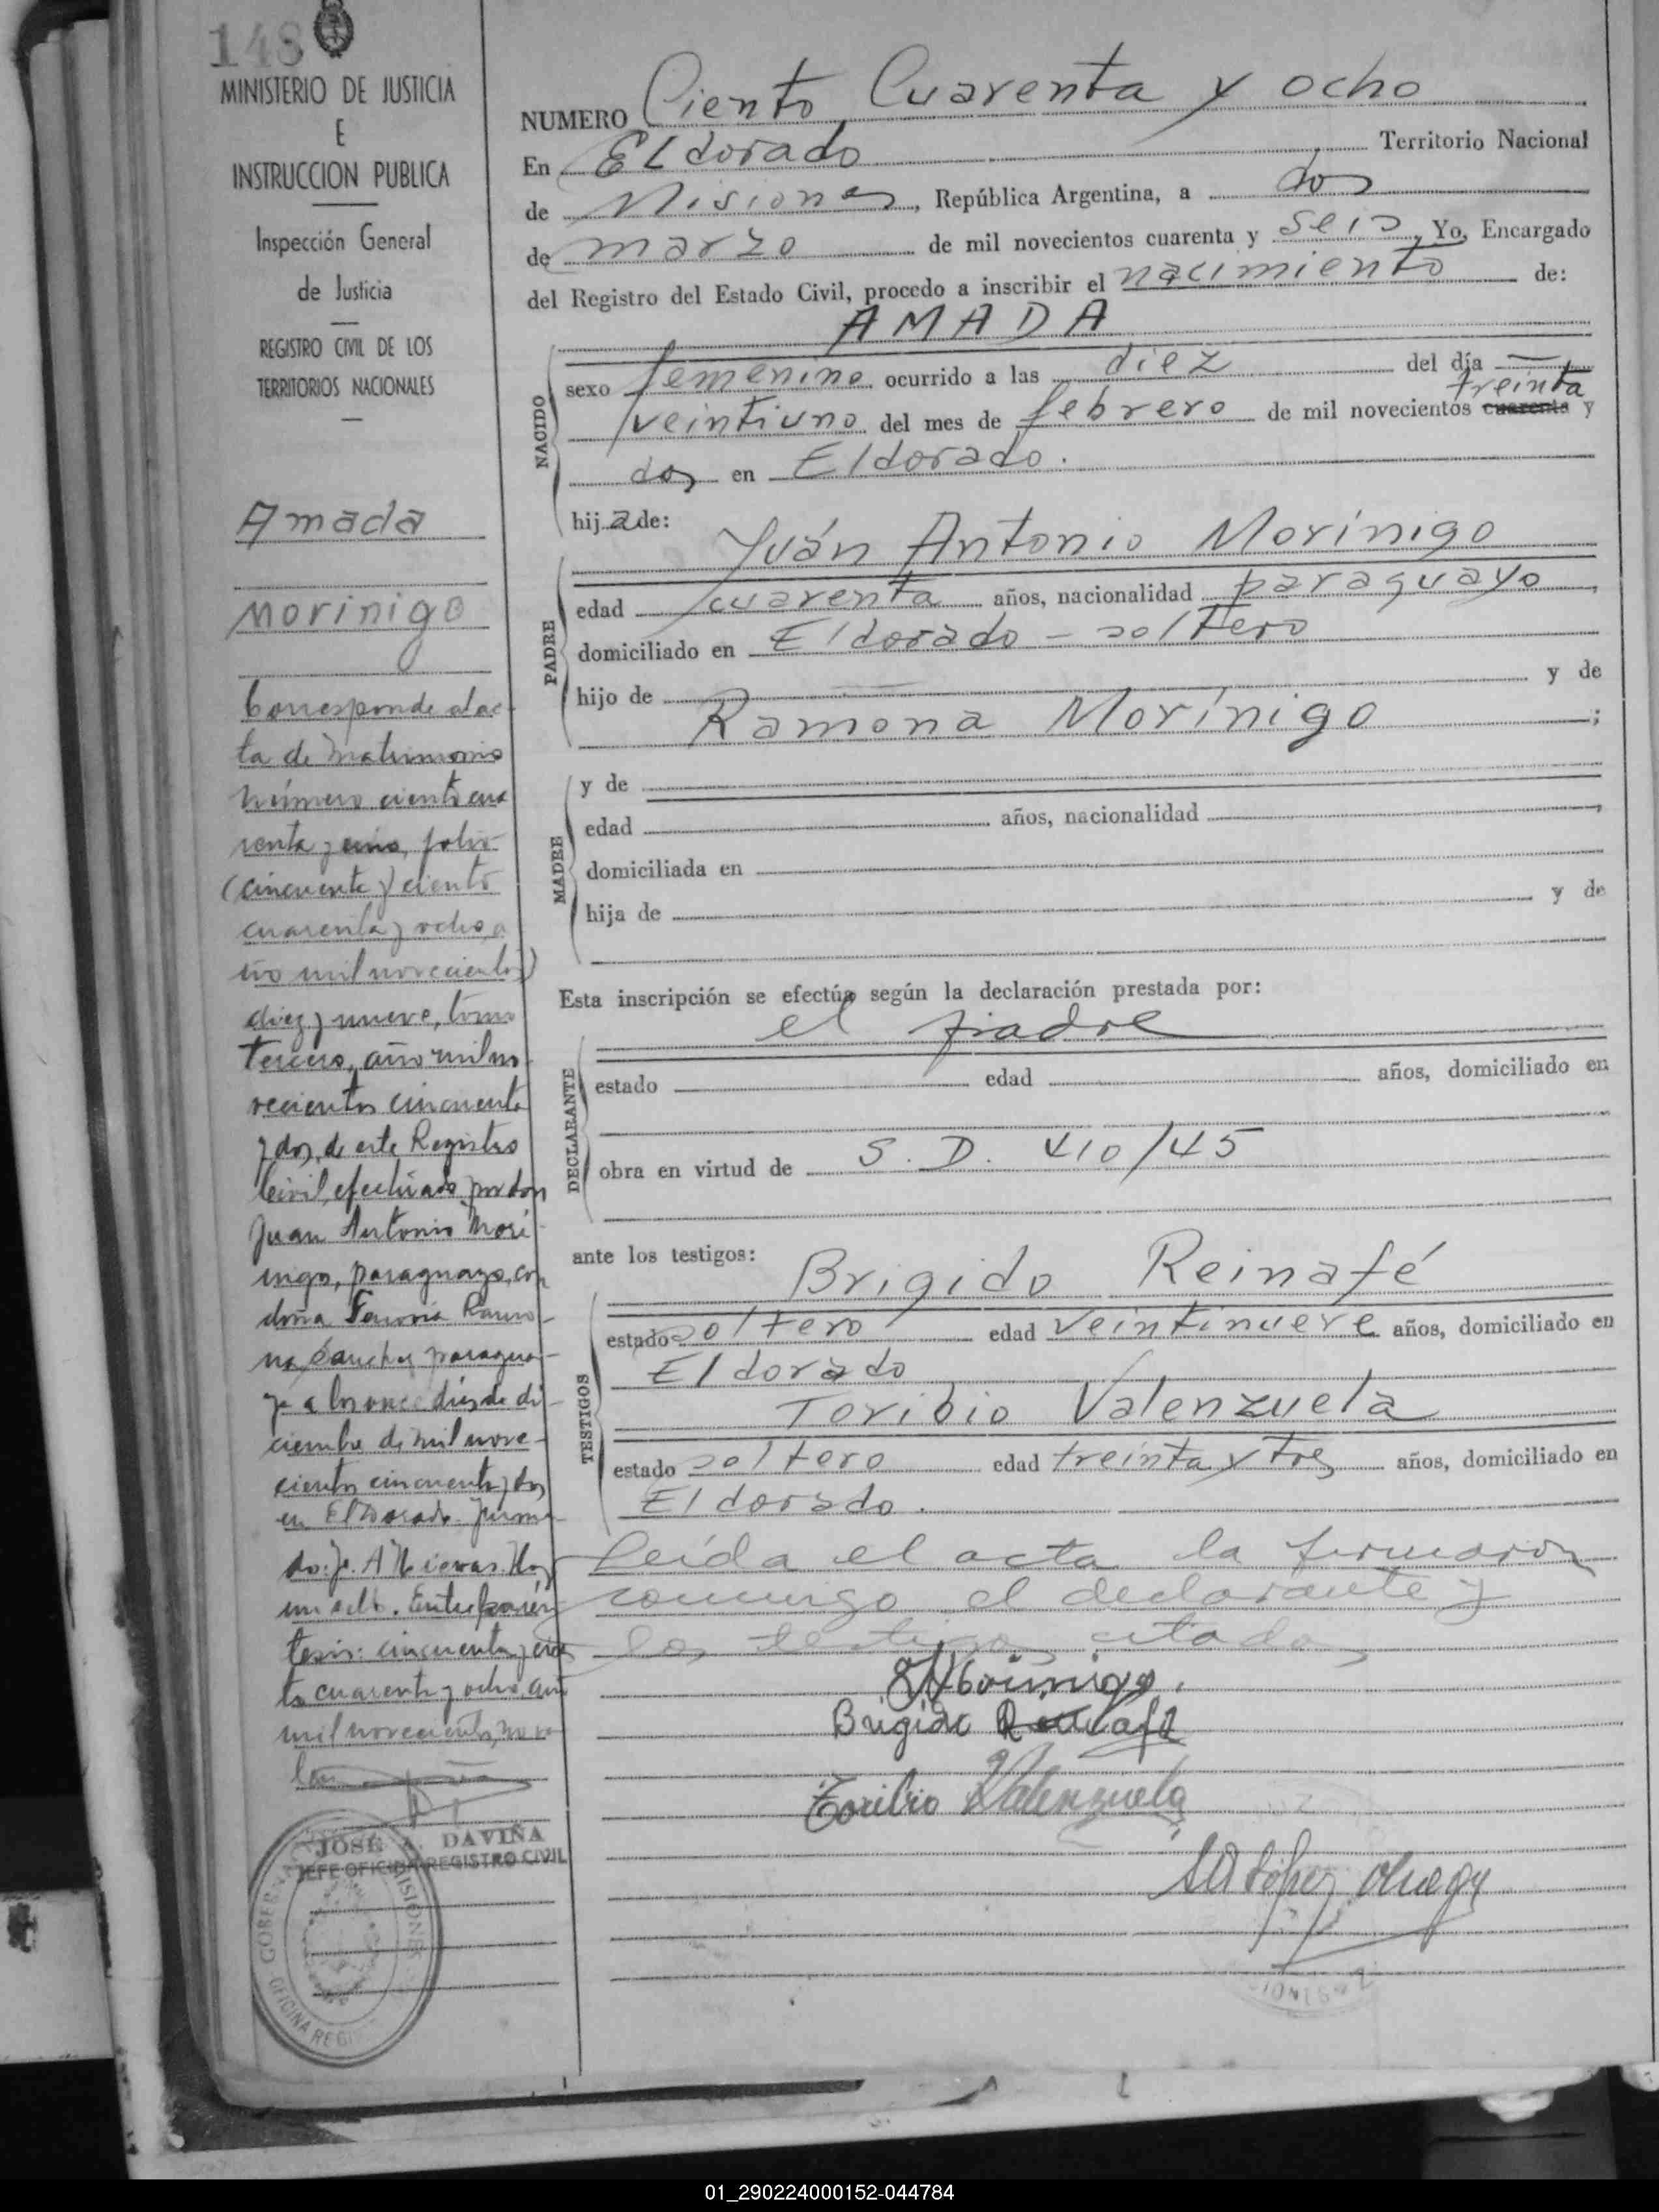 148
MINISTERIO DE JUSTICIA
E
INSTRUCCION PUBLICA
Inspección General
de Justicia
REGISTRO CIVIL DE LOS
TERRITORIOS NACIONALES
Amada
Morinigo
Corresponde al ac-
ta de Matrimonio
número ciento cua
renta y uno, folio
(cincuenta y ciento
cuarenta y ocho, a
ño mil novecientos)
diez y nueve, tomo
tercero, año mil no-
vecientos cincuenta
y dos, de este Registro
Civil, efectuado por don
Juan Antonio Mori-
nigo, paraguayo, con
doña Ramo-
na Sanchez paragua-
ya a los once días de di-
ciembre de mil nove-
cientos cincuenta y dos
en El Dorado. Firma-
do: J. A.
Entre parén
tesis: cincuenta y cien
to cuarenta y ocho, año
mil novecientos, no va-
len
JOSÉ A. DAVIÑA
JEFE OFICINA REGISTRO CIVIL
GOBER MISIONES
OFICINA REGI
NUMERO Ciento Cuarenta y ocho
En Eldorado Territorio Nacional
de Misiones, República Argentina, a dos
de marzo de mil novecientos cuarenta y seis, Yo, Encargado
del Registro del Estado Civil, procedo a inscribir el nacimiento de:
AMADA
NACIDO
sexo femenino ocurrido a las diez del día —
treinta
veintiuno del mes de febrero de mil novecientos cuarenta y
dos en Eldorado.
hij a de:
PADRE
Juán Antonio Morínigo
edad cuarenta años, nacionalidad paraguayo,
domiciliado en Eldorado - soltero
hijo de — y de
Ramona Morínigo;
MADRE
y de
edad años, nacionalidad ,
domiciliada en
hija de y de
Esta inscripción se efectúa según la declaración prestada por:
DECLARANTE
el padre
estado edad años, domiciliado en
obra en virtud de S. D. 410/45
ante los testigos:
TESTIGOS
Brigido Reinafé
estado soltero edad veintinueve años, domiciliado en
Eldorado
Toribio Valenzuela
estado soltero edad treinta y tres años, domiciliado en
Eldorado.
Leída el acta la firmaron
conmigo el declarante y
los testigos citados
Morinigo.
Brigido Reinafé
Toribio Valenzuela
01_290224000152-044784